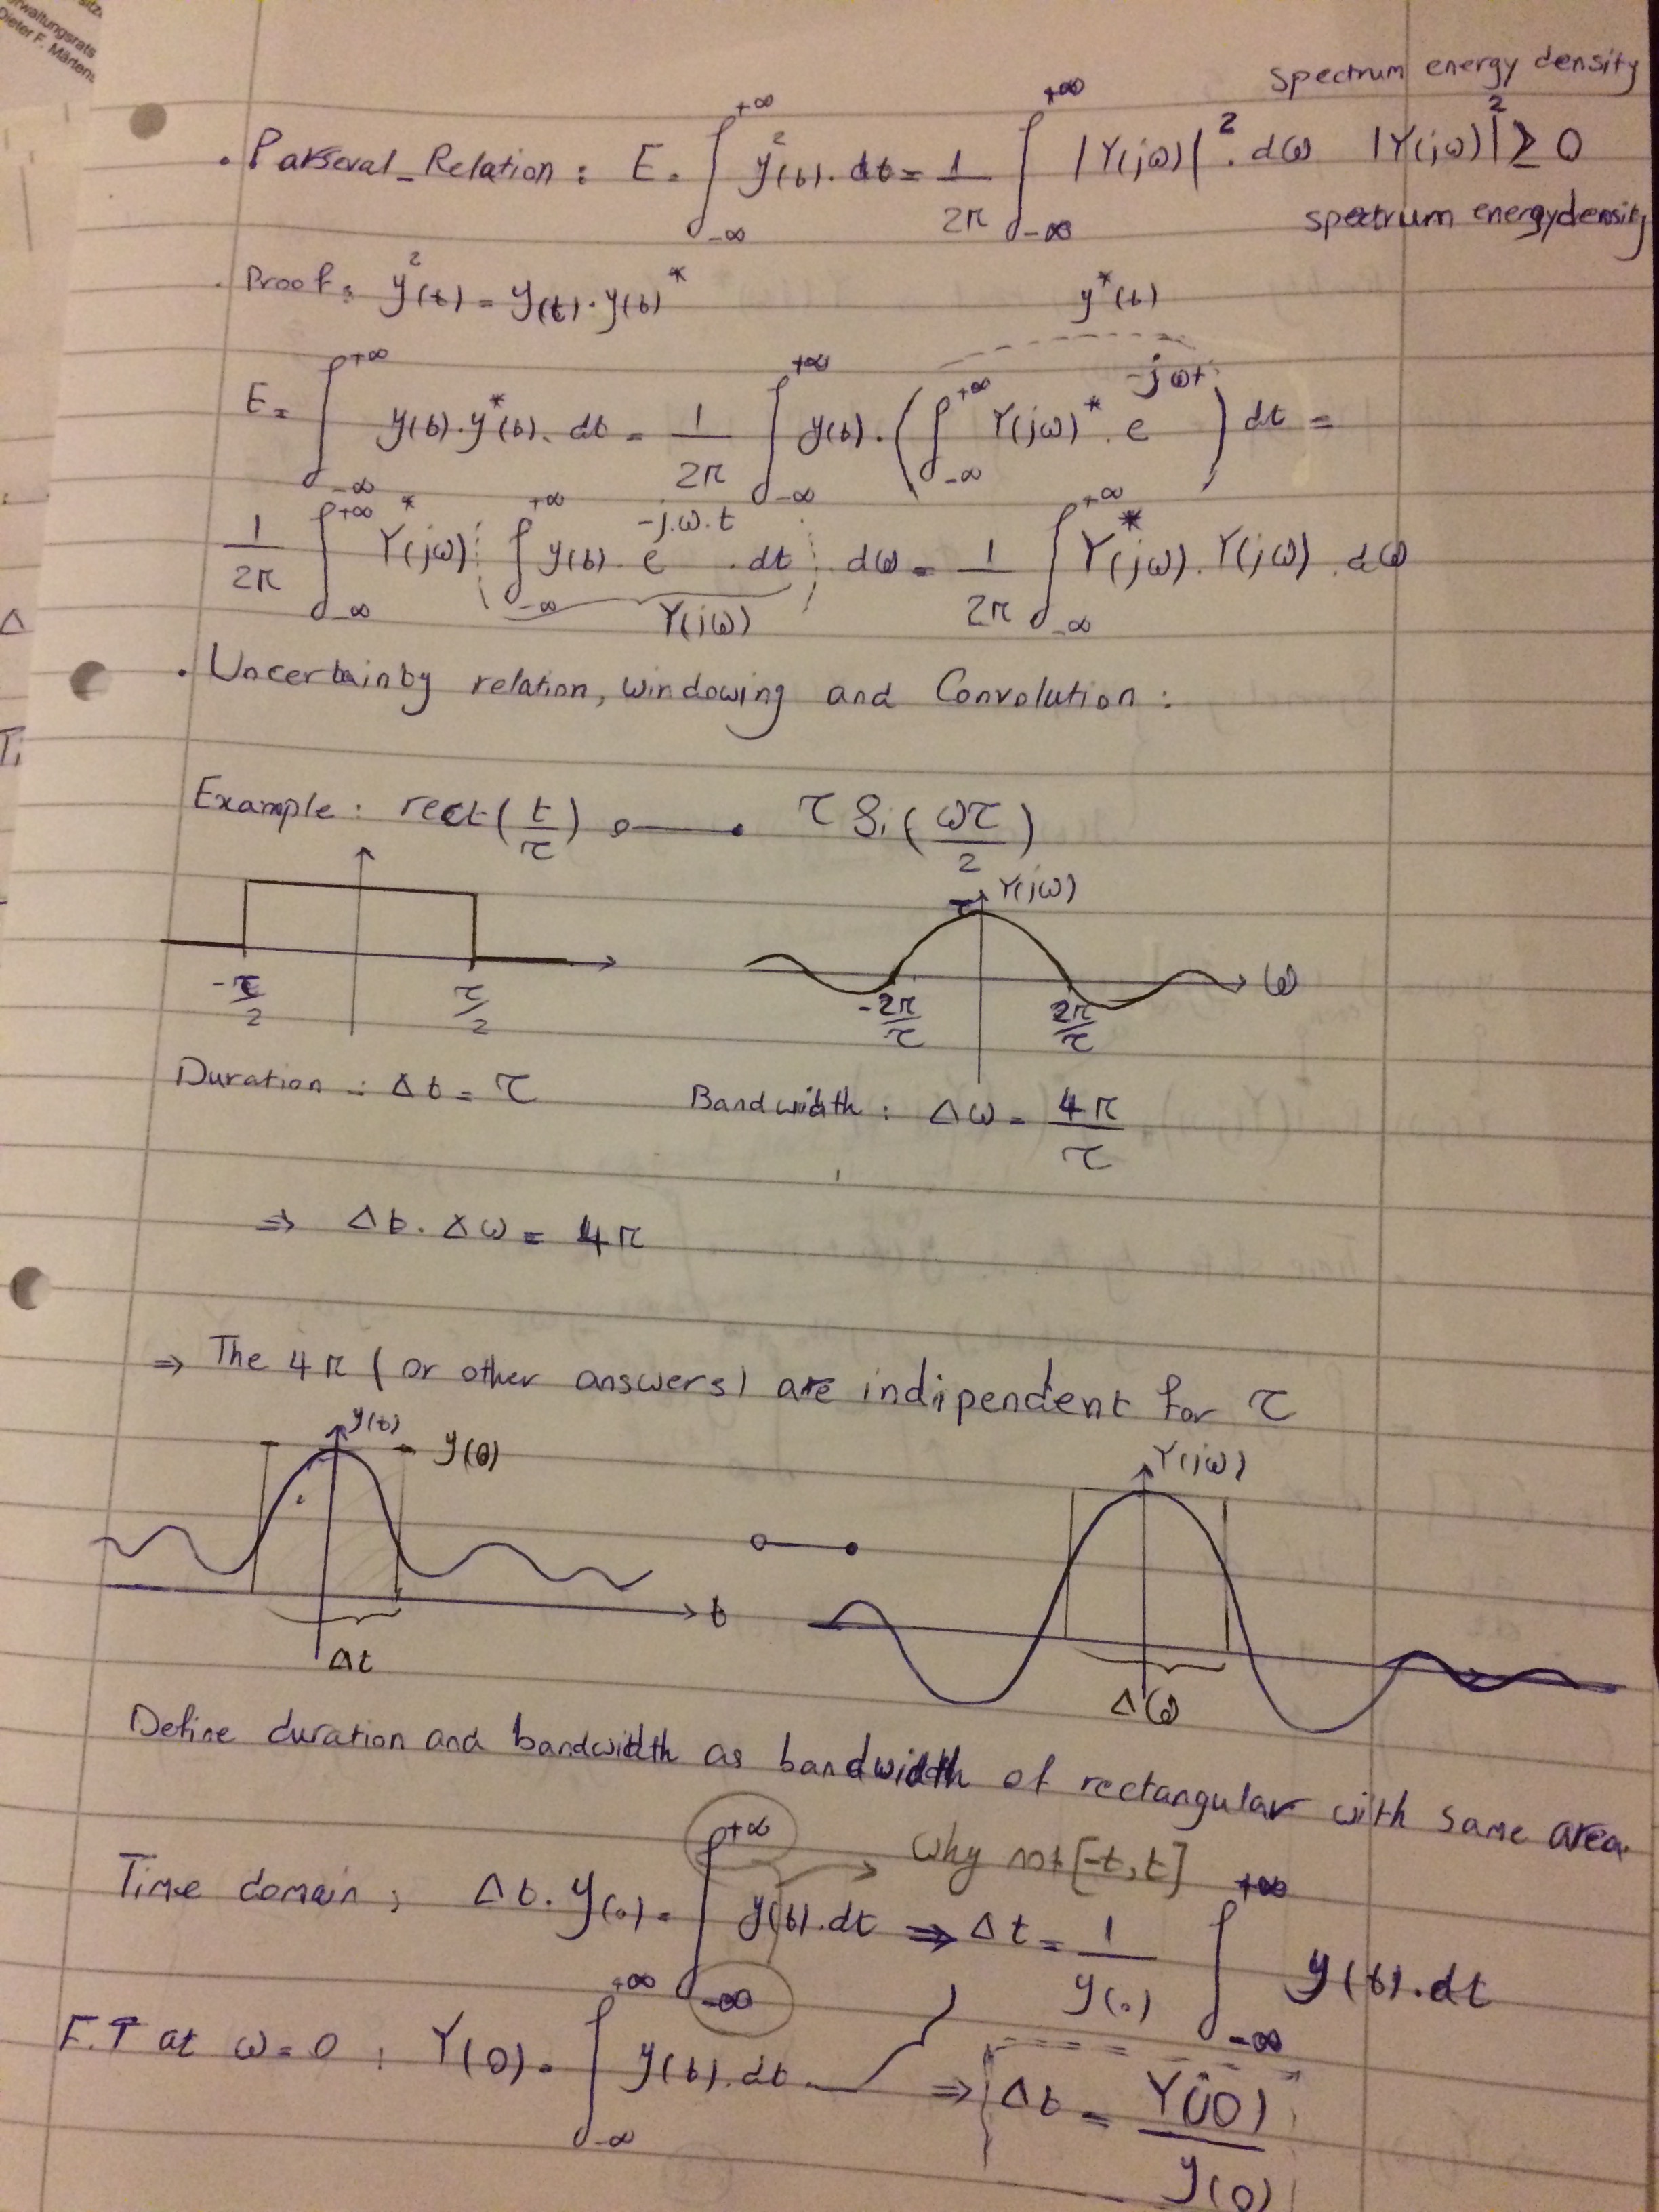 sitz
rwaltungsrats
Dieter F. Märtens
spectrum energy density
. Parseval_Relation : E = ∫_{-∞}^{+∞} y²(t). dt = 1/2π ∫_{-∞}^{+∞} |Y(jω)|². dω |Y(jω)|² ≥ 0
spectrum energydensity
. Proof: y²(t) = y(t). y(t)* y*(t)
E = ∫_{-∞}^{+∞} y(t). y*(t). dt = 1/2π ∫_{-∞}^{+∞} y(t). ( ∫_{-∞}^{+∞} Y(jω)* . e^{-jωt} ) dt =
1/2π ∫_{-∞}^{+∞} Y*(jω) ( ∫_{-∞}^{+∞} y(t). e^{-j.ω.t} . dt ) dω = 1/2π ∫_{-∞}^{+∞} Y*(jω). Y(jω) . dω
Y(jω)
. Uncertainty relation, windowing and Convolution :
Example : rect( t/τ ) o—• τ Si( ωτ/2 )
τ Y(jω)
ω
-τ/2 τ/2 -2π/τ 2π/τ
Duration : Δt = τ Bandwidth : Δω = 4π/τ
⇒ Δt. Δω = 4π
⇒ The 4π ( or other answers) are indipendent for τ
y(t) y(0) Y(jω)
t
Δt Δω
Define duration and bandwidth as bandwidth of rectangular with same area.
Why not [-t, t]
Time domain ; Δt. y(0) = ∫_{-∞}^{+∞} y(t). dt ⇒ Δt = 1/y(0) ∫_{-∞}^{+∞} y(t). dt
F.T at ω = 0 : Y(0) = ∫_{-∞}^{+∞} y(t). dt ⇒ Δt = Y(j0)/y(0)